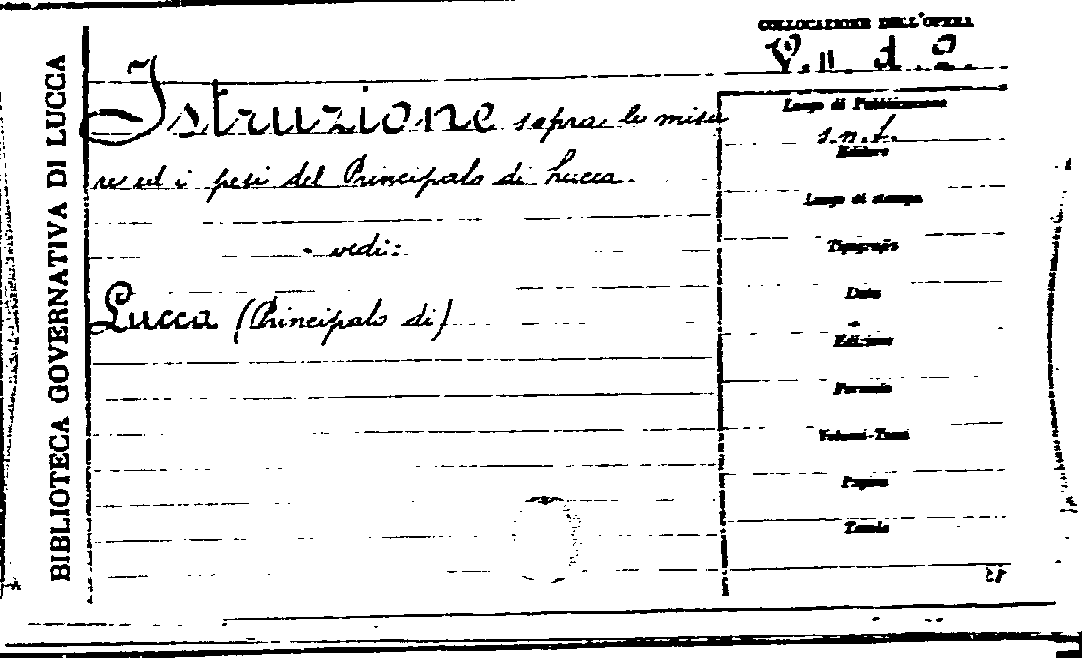 COLLOCAZIONE DELL'OPERA
BIBLIOTECA GOVERNATIVA DI LUCCA
Istruzione sopra le misu
re ed i pesi del Principato di Lucca.
- vedi:
Lucca (Principato di)
Luogo di Pubblicazione
s.n.t.
Editore
Luogo di stampa
Tipografo
Data
Edizione
Formato
Volumi-Tomi
Pagine
Tavole